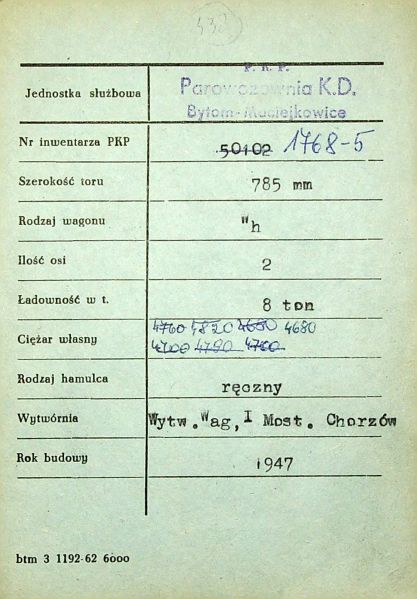 432
P. K. P.
Jednostka służbowa Parowozownia K.D.
Bytom-Maciejkowice
Nr inwentarza PKP 50102 1768-5
Szerokość toru 785 mm
Rodzaj wagonu Wh
Ilość osi 2
Ładowność w t. 8 ton
4760 4820 4680 4680
Ciężar własny 4700 4790 4760
Rodzaj hamulca ręczny
Wytwórnia Wytw. Wag, I Most. Chorzów
Rok budowy 1947
btm 3 1192-62 6000